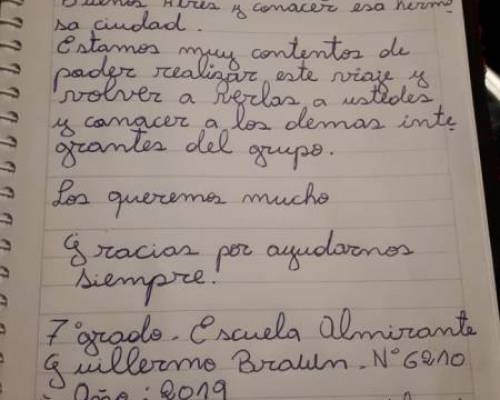 Buenos Aires y conocer esa hermo
sa ciudad.
Estamos muy contentos de
poder realizar este viaje y
volver a verlas a ustedes
y conocer a los demas inte-
grantes del grupo.
Los queremos mucho
Gracias por ayudarnos
siempre.
7° grado. Escuela Almirante
Guillermo Brown. N° 6210
Año: 2019